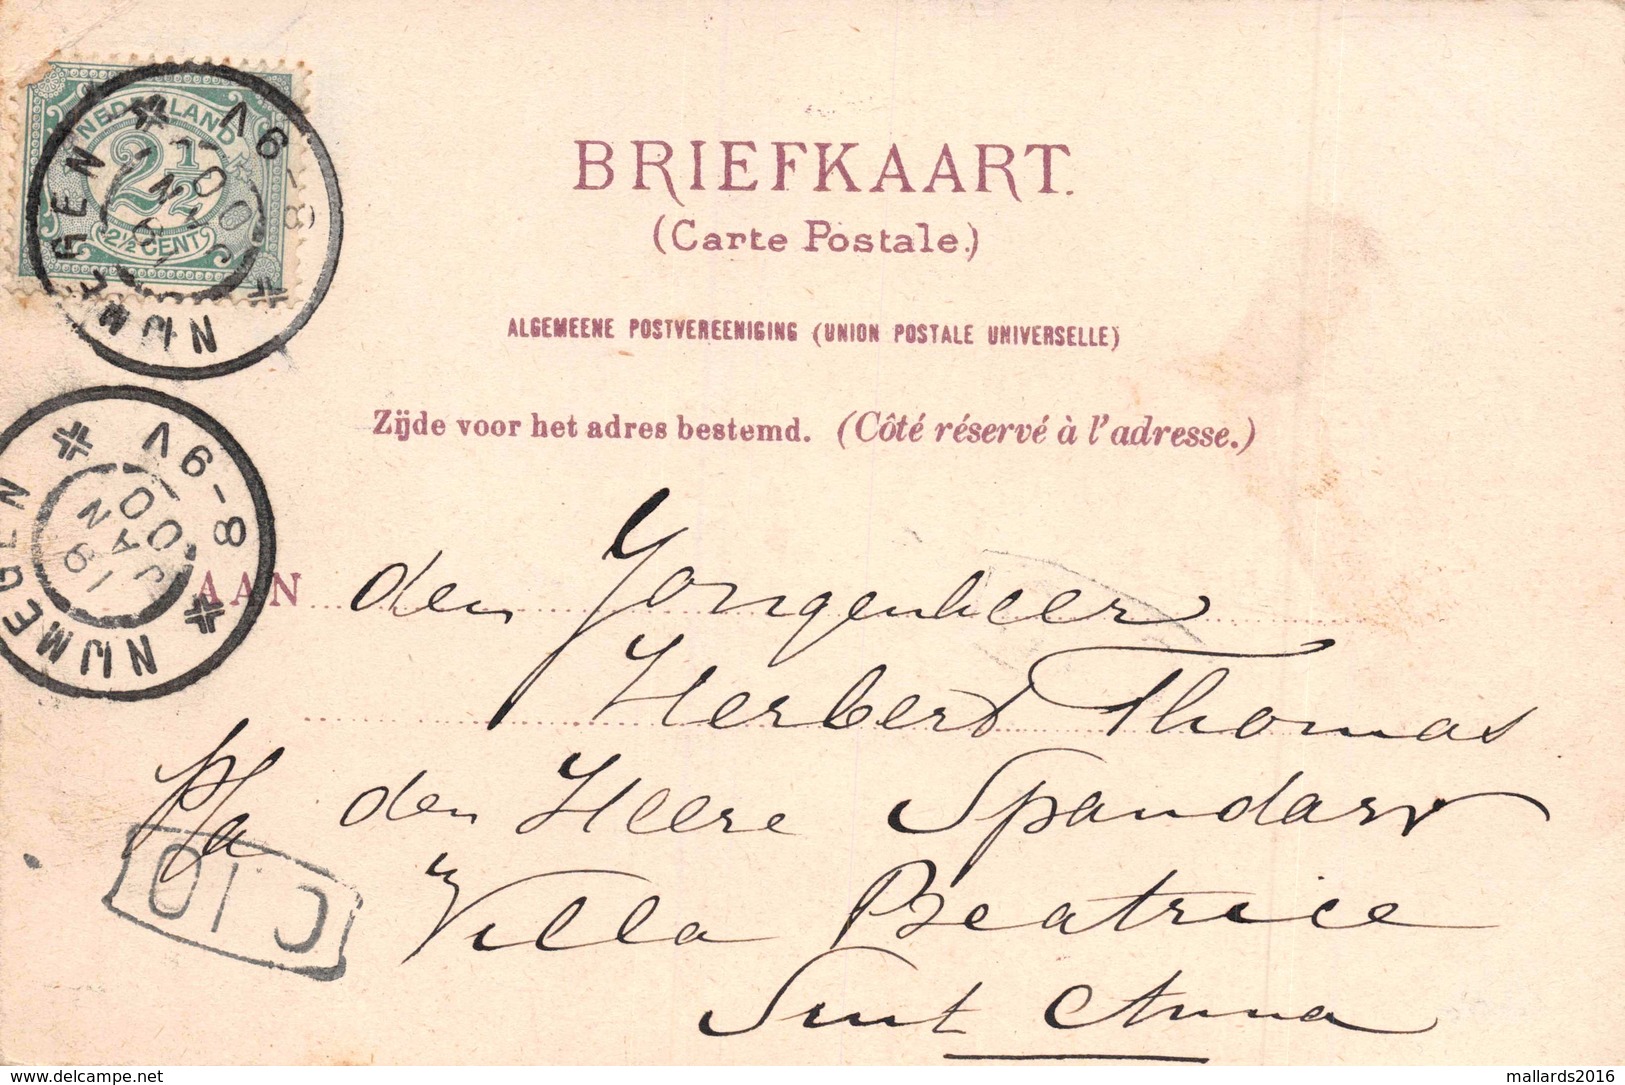 NEDERLAND
2½
2½ CENT
NIJMEGEN 8-9V
19 JAN 00
BRIEFKAART.
(Carte Postale.)
ALGEMEENE POSTVEREENIGING (UNION POSTALE UNIVERSELLE)
Zijde voor het adres bestemd. (Côté réservé à l'adresse.)
NIJMEGEN 8-9V
19 JAN 00
AAN den Jongenheer
Herbert Thomas
p/a den Heere Spandaw
Villa Beatrice
C 10
Sint Anna
mallards2016